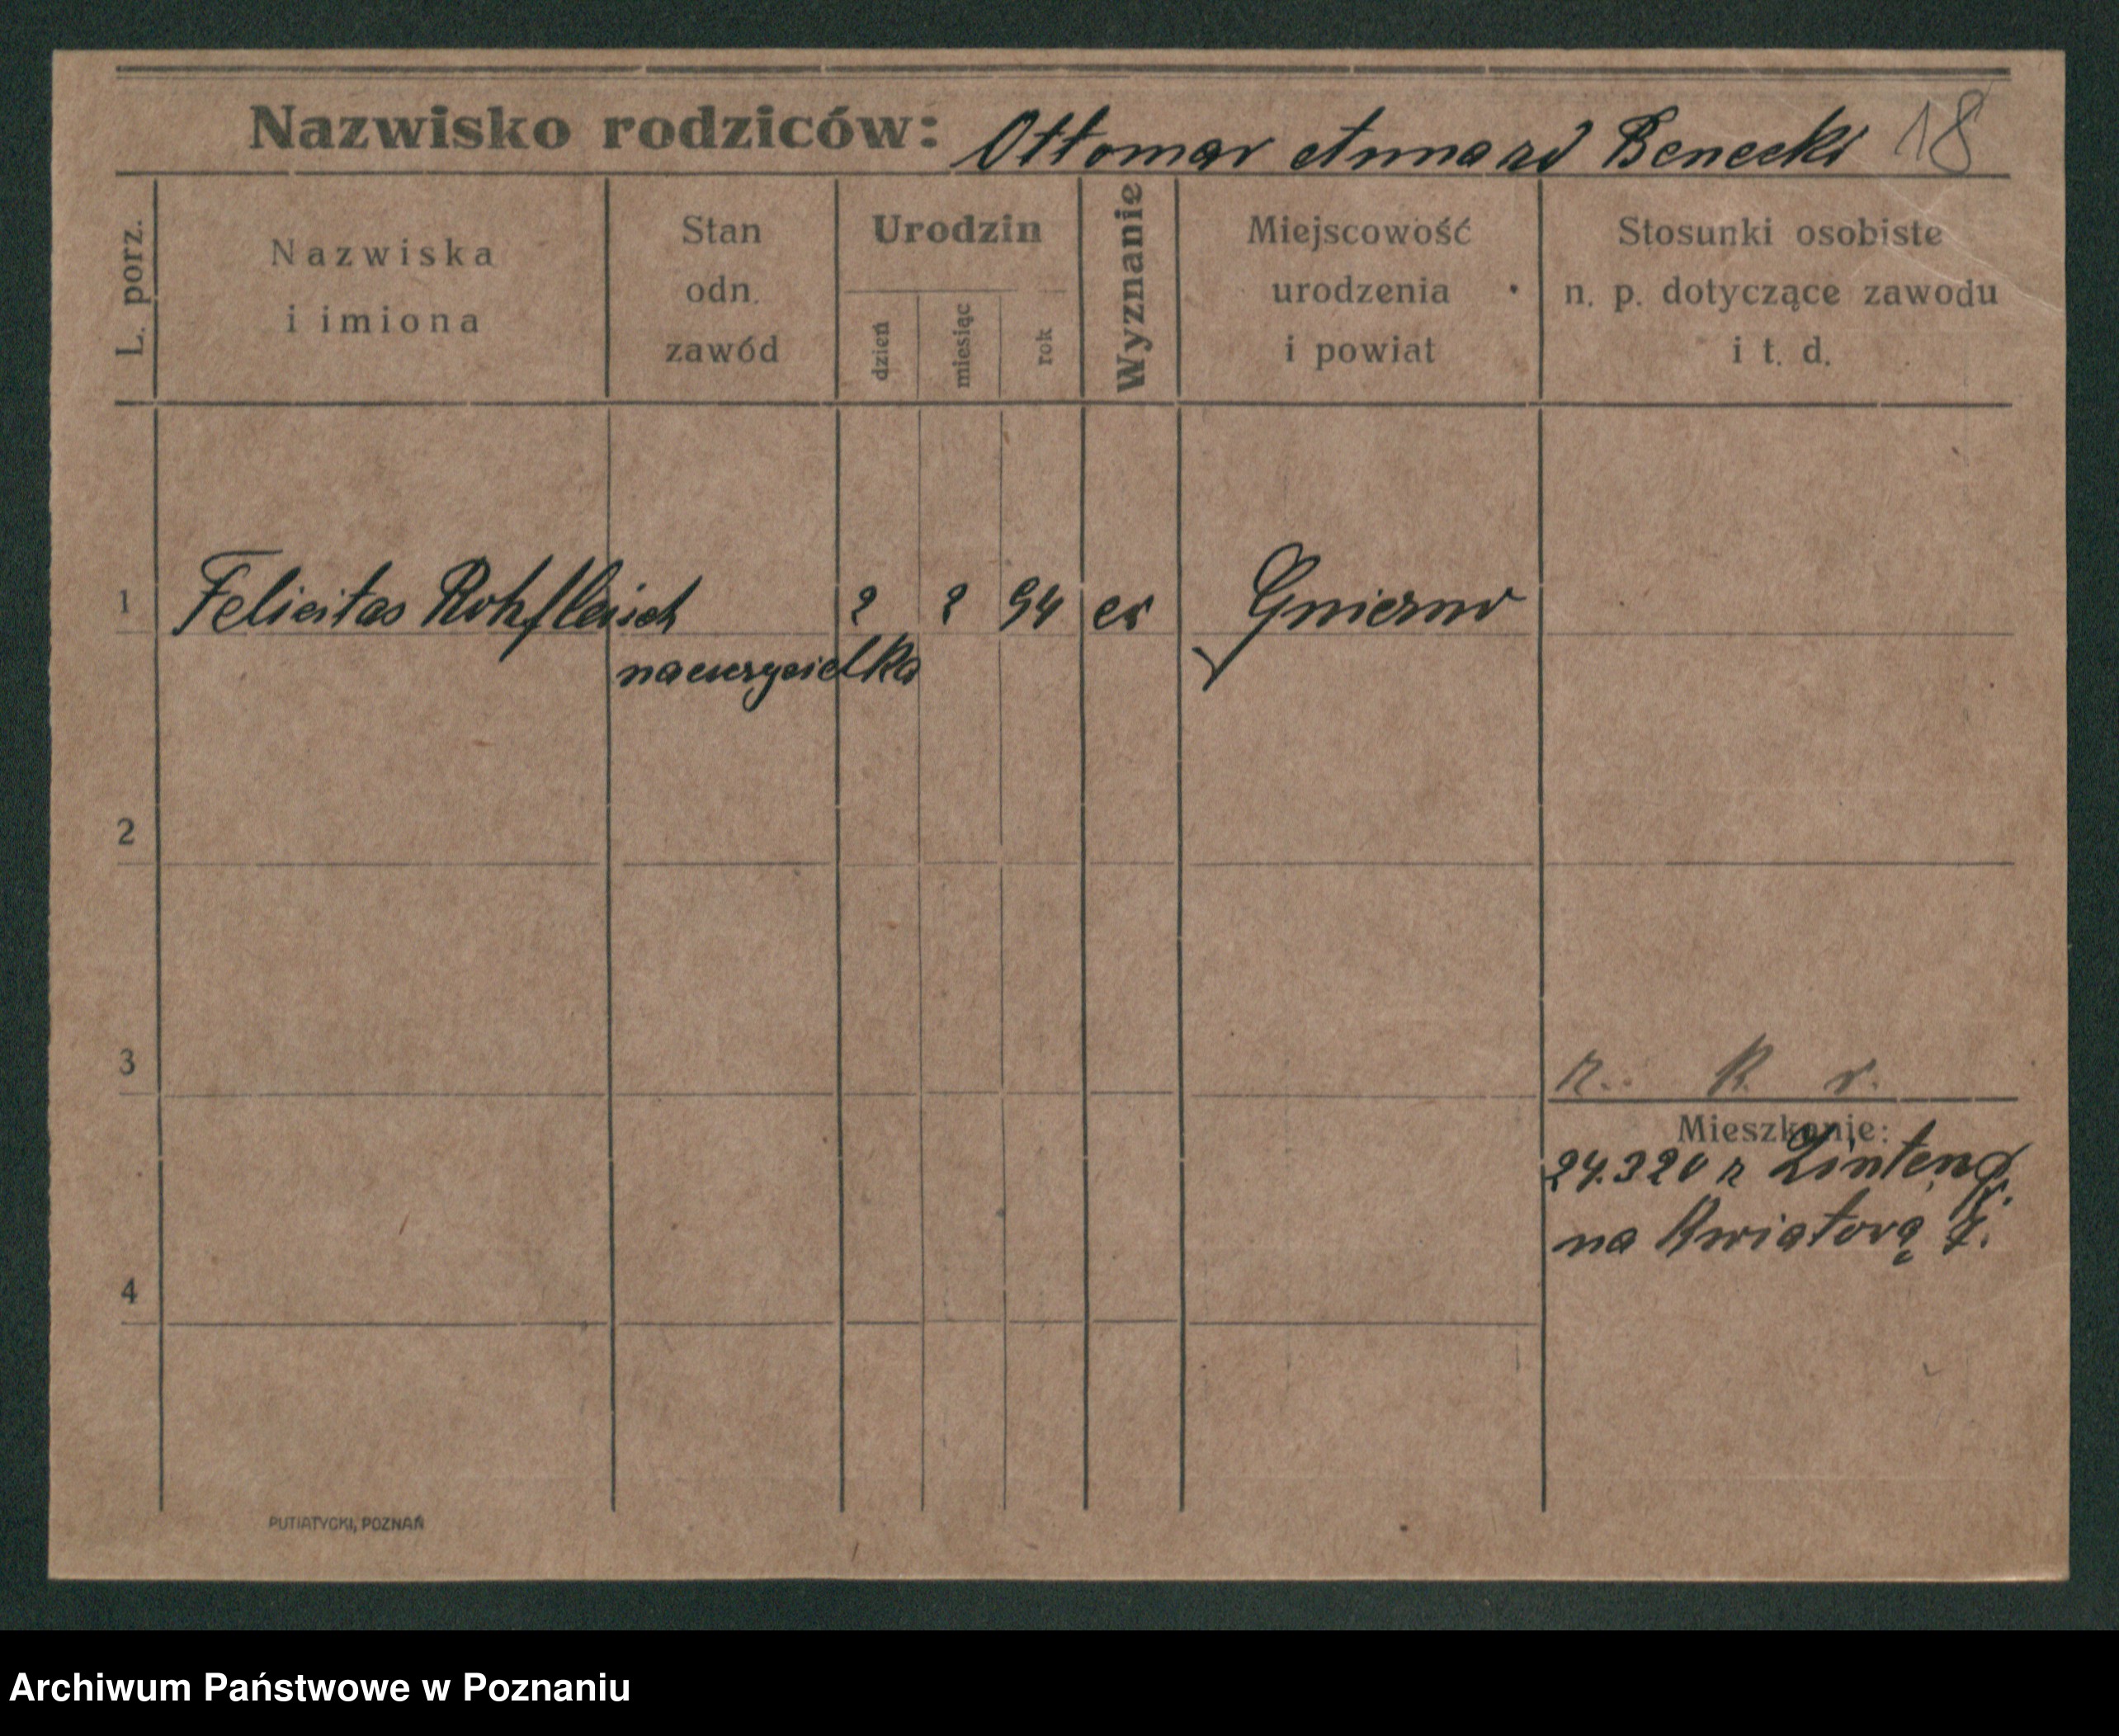 Nazwisko rodziców: Ottomar Anna zd Benecki 18
L. porz.
Nazwiska
i imiona
Stan
odn.
zawód
Urodzin
dzień
miesiąc
rok
Wyznanie
Miejscowość
urodzenia
i powiat
Stosunki osobiste
n. p. dotyczące zawodu
i t. d.
1 Felicitas Rohfleisch 2 2 94 ew Gniezno
nauczycielka
2
3
r. k. r.
Mieszkanie:
24.3 20 z
na Kwiatową 7.
4
PUTIATYCKI, POZNAŃ
Archiwum Państwowe w Poznaniu